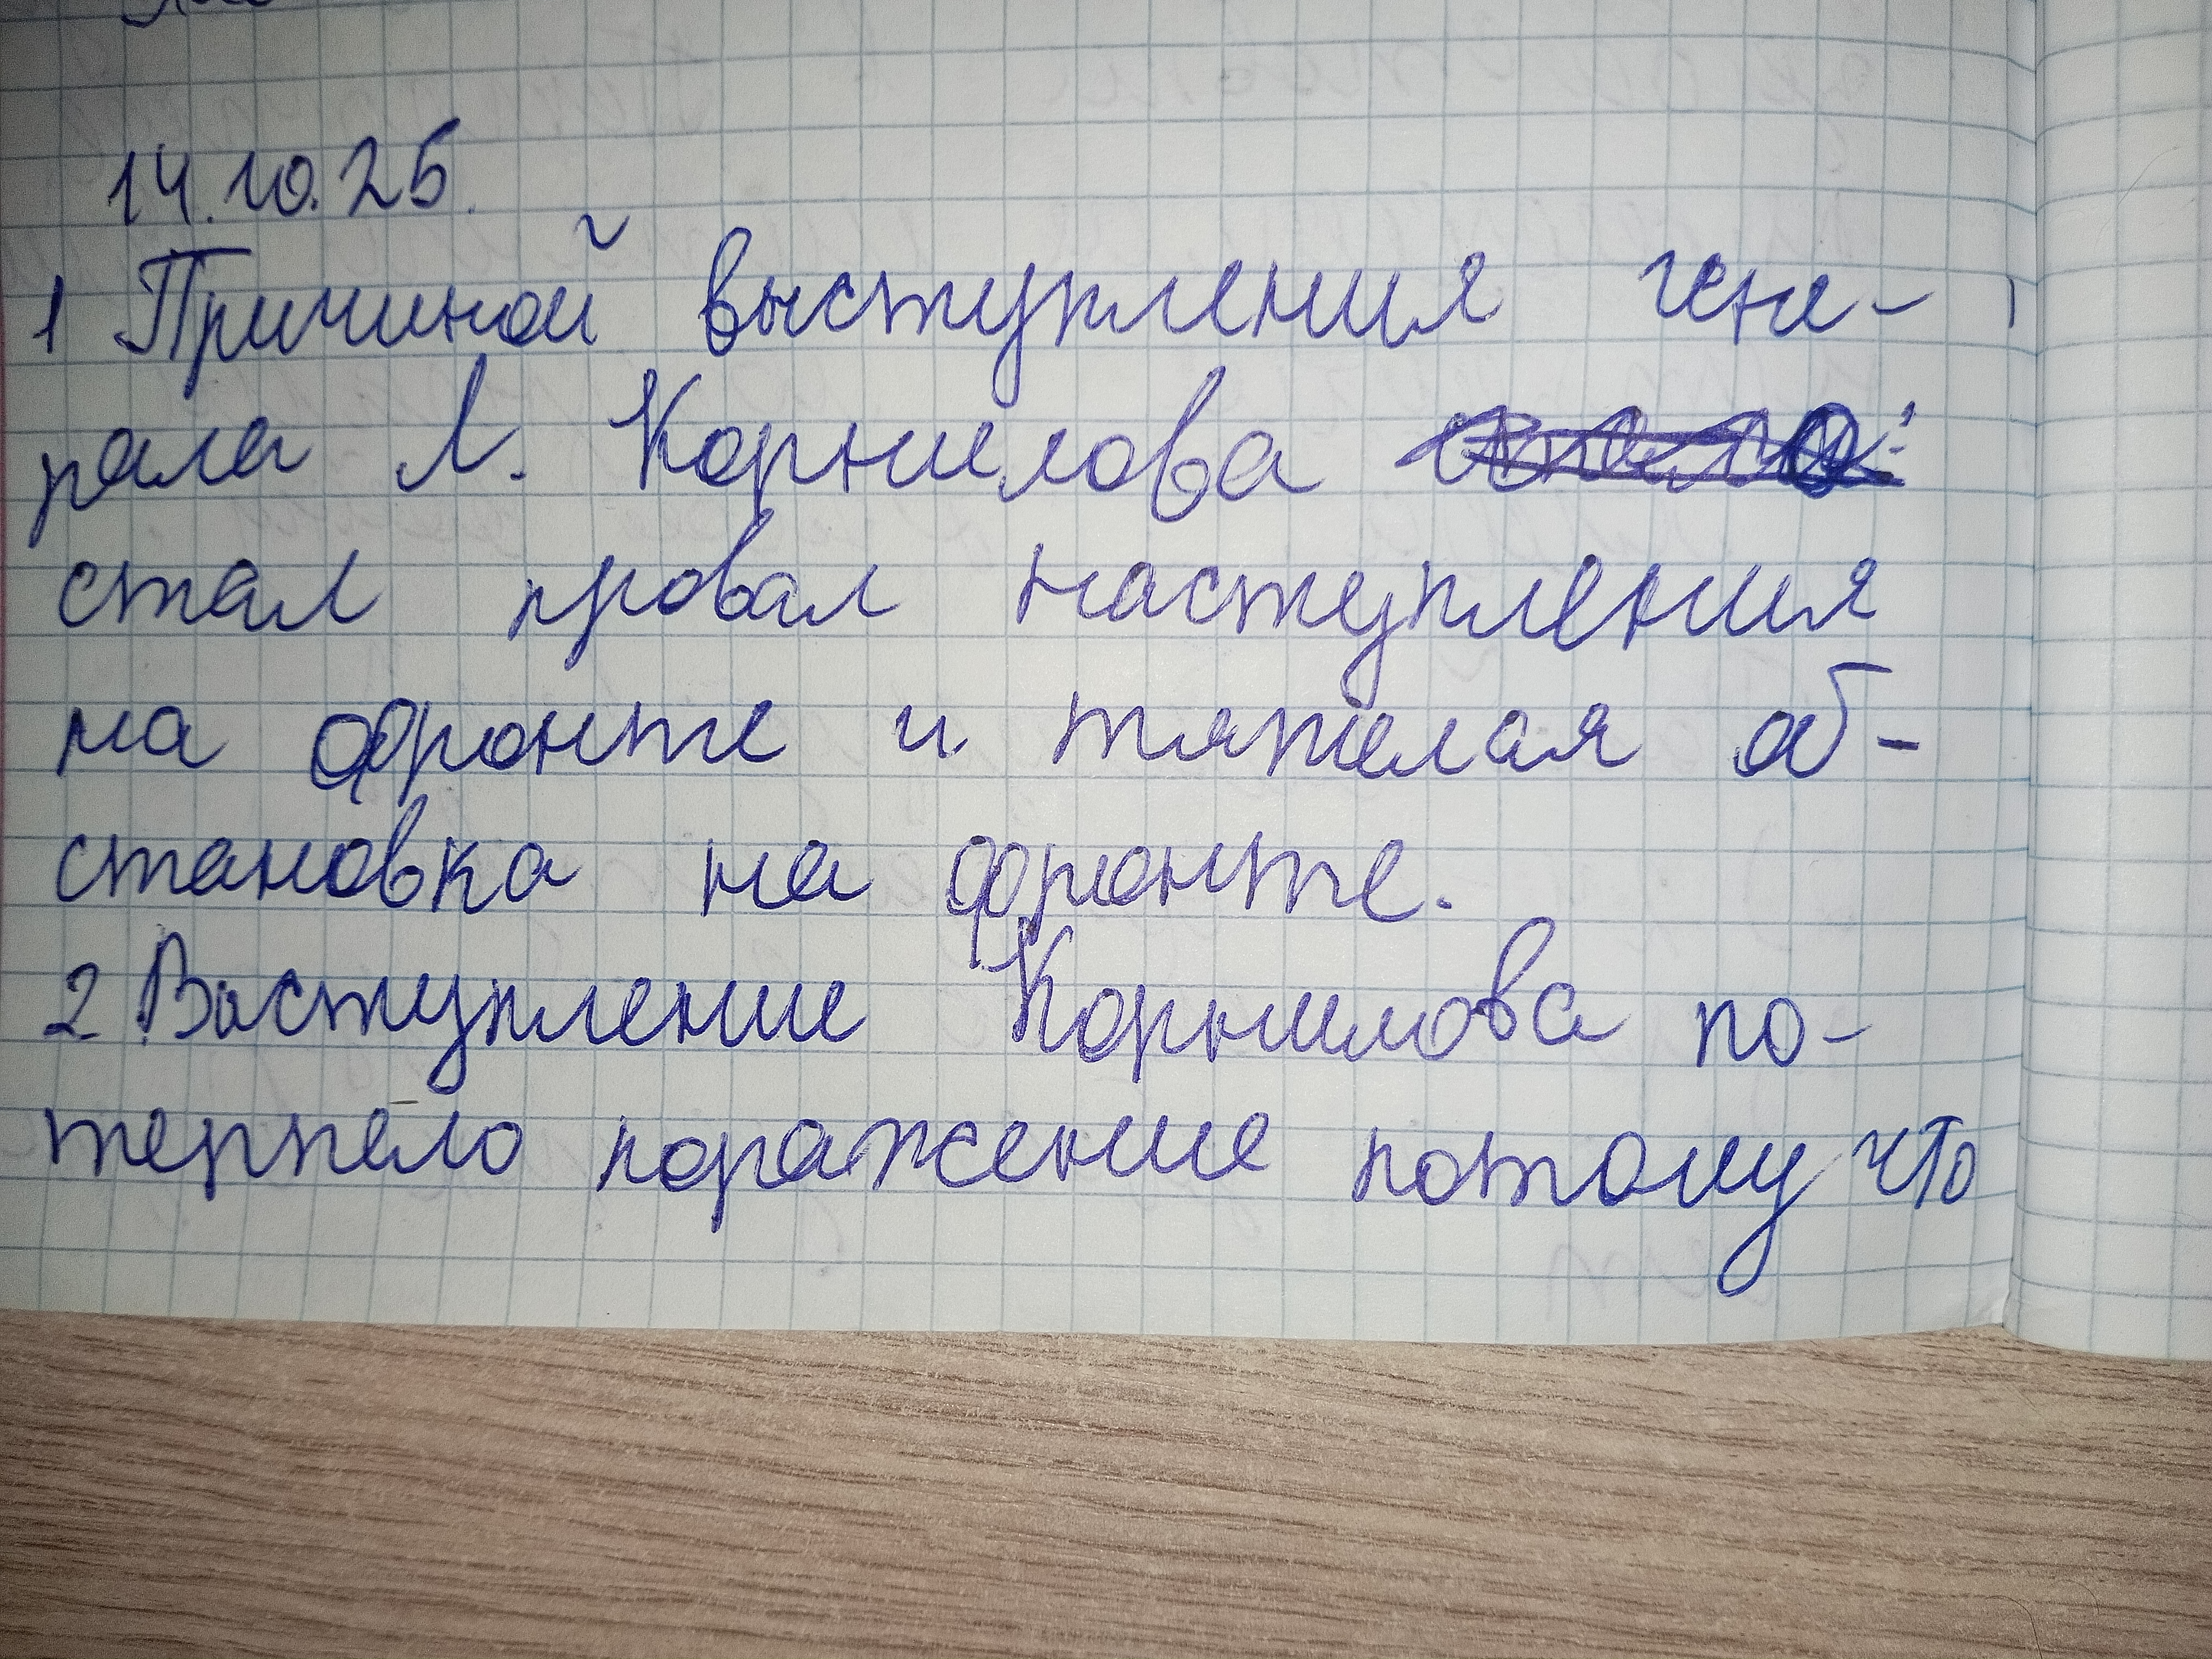 14.10.25.
1 Причиной выступления гене-
рала Л. Корнилова
стал провал наступления
на фронте и тяжёлая об-
становка на фронте.
2 Выступление Корнилова по-
терпело поражение потому что